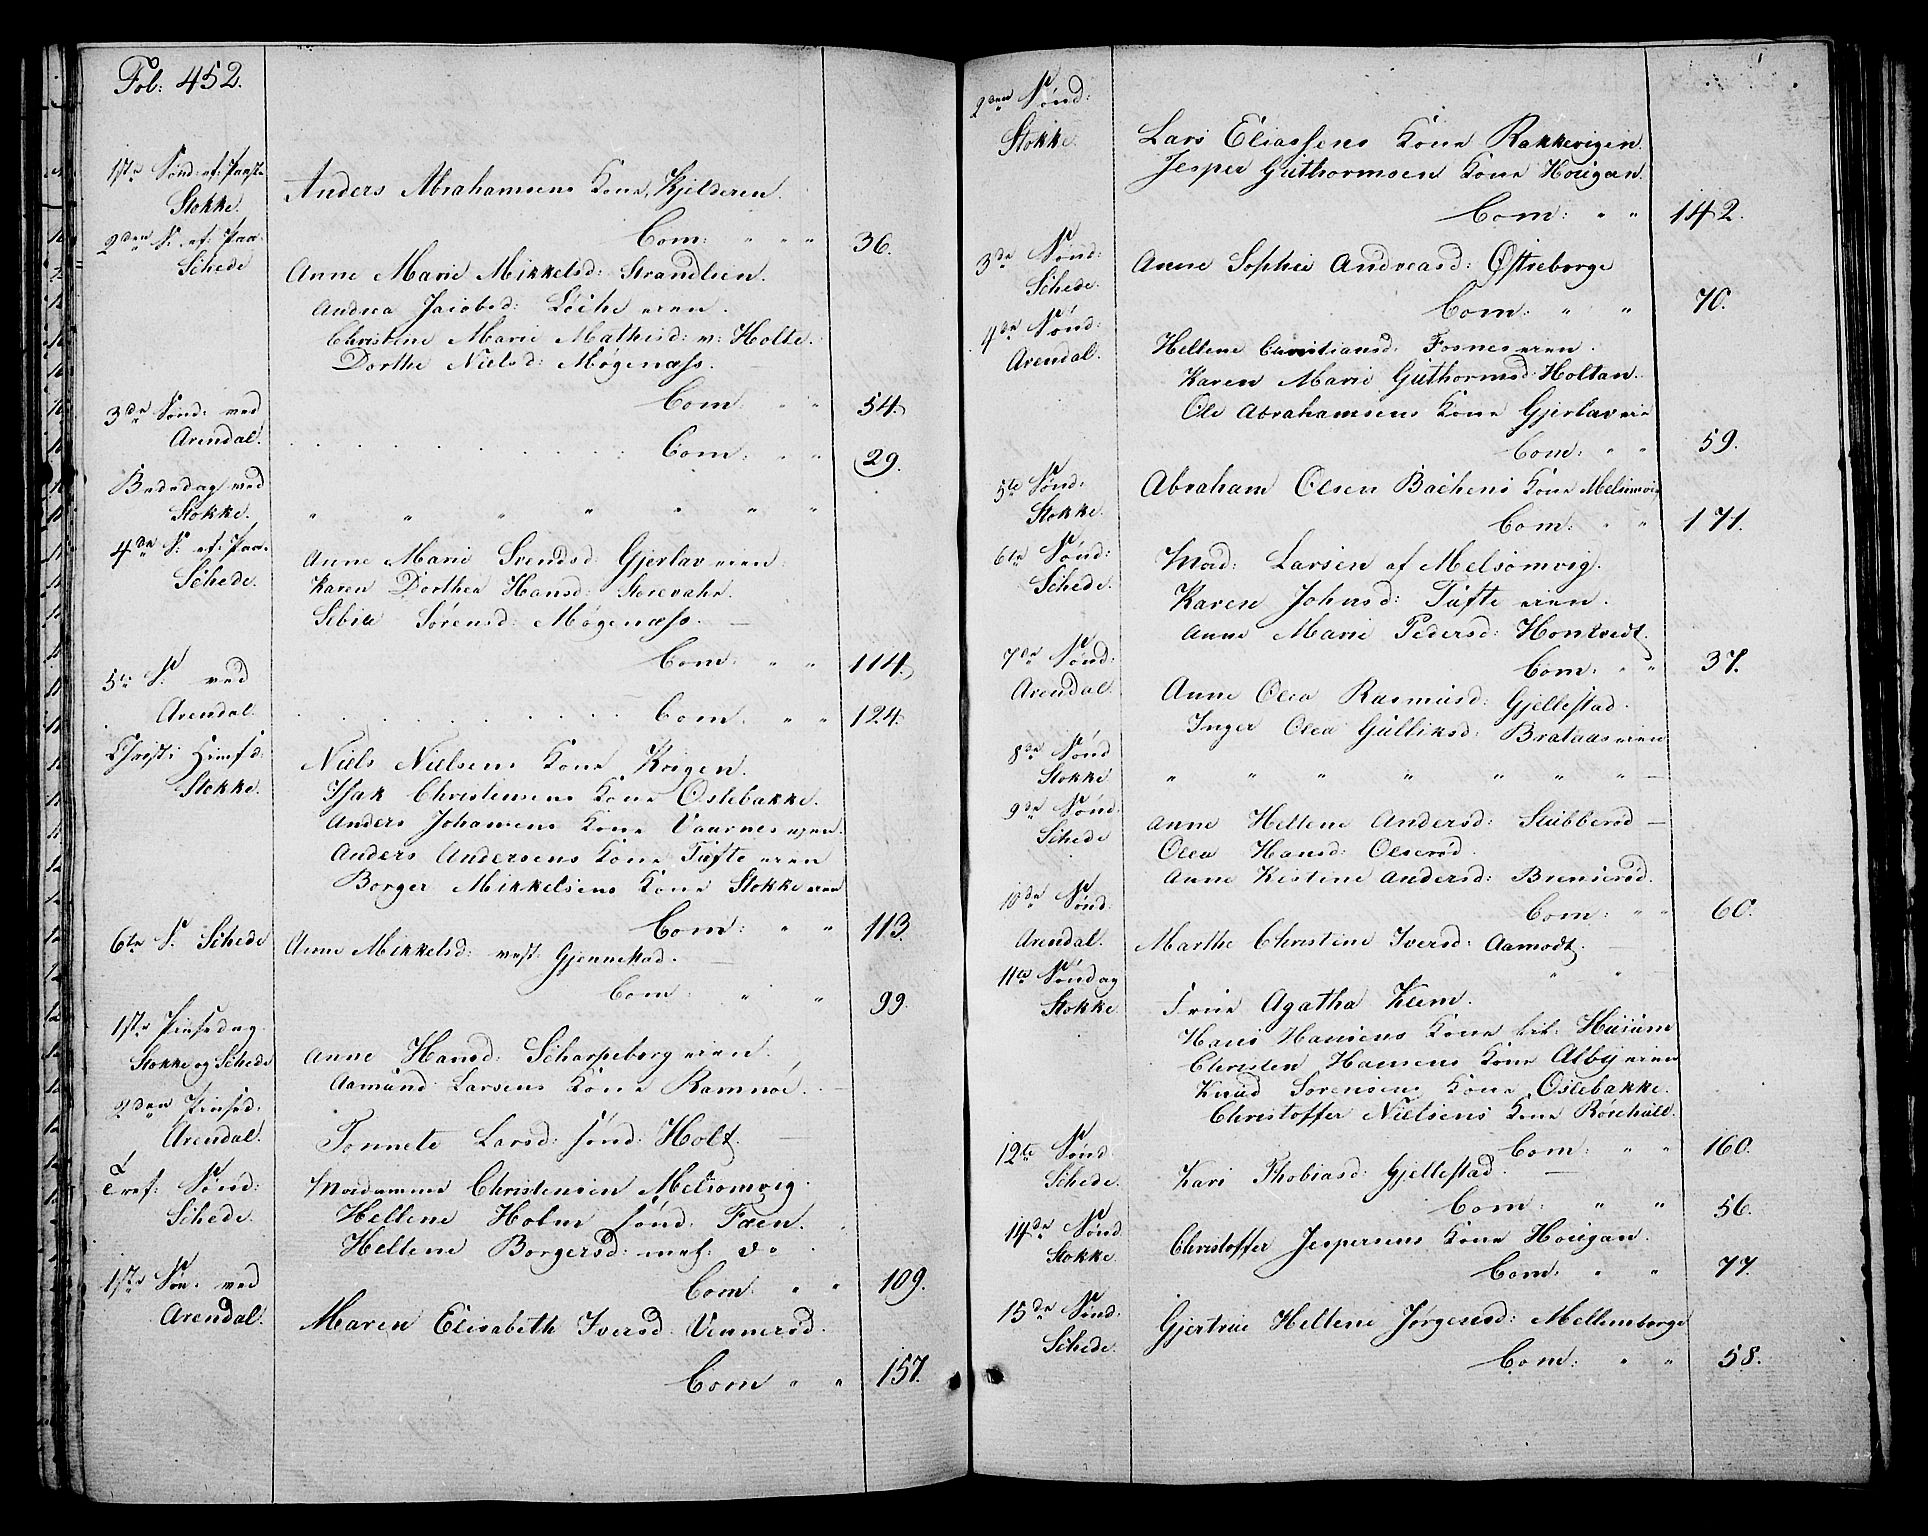 Fol: 452.
1ste Sönd: ef: Paaske
Stokke.
Anders Abrahamsens Kone, Kjelderen.
Com: " " " 36.
2den S: ef: Paa.
Schede
Anne Marie Mikkelsd: Strandlien.
Andrea Jacobsd: eien.
Christine Marie Mathisd: v: Holte.
Dorthe Nielsd: Møgenæss.
Com. " " 54.
3de Sönd: ved
Arendal.
Com: " " 29.
Bededag ved
Stokke. " " " " " " "
4de S: ef: Paa.
Schede.
Anne Marie Svendsd: Gjerlav eien.
Karen Dorthea Hansd: Storevahr.
Sebille Sörensd: Møgenæss.
Com: " " 114.
5te S. ved
Arendal.
Com. " " 124.
Christi Himfd:
Stokke.
Niels Nielsens Kone Krigen.
Isak Christensens Kone Oslebakke.
Anders Johansens Kone Vaarnes eien.
Anders Andersens Kone Tufte eien
Borger Mikkelsens Kone Stokke eien
Com: " " 113.
6te S. Schede
Anne Mikkelsd: vest: Gjennestad.
Com: " " 99.
1ste Pinsedag.
Stokke og Schede
Anne Hansd: Scharpeborg eien.
Aamund Larsens Kone Ramnöe.
2den Pinsed:
Arendal.
Tonnete Larsd: sönd: Holt.
Tref: Sönd:
Schede.
Madamme Christensen Melsomvig.
Hellene Holm sönd: Fæen.
Hellene Borgersd: do
Com " " 109.
1ste Sön. ved
Arendal.
Maren Elisabeth Iversd. Vennersd.
Com " " 157.
2den Sönd:
Stokke.
Lars Eliassens Kone Rakkevigen.
Jesper Guthormsen Kone Hougan.
Com: " " 142.
3de Sönd:
Schede.
Anne Sophie Andreasd: Østreborge
Com: " " 70.
4de Sönd:
Arendal.
Hellene Christiansd: Fosnes eien.
Karen Marie Guthormsd: Holtan.
Ole Abrahamsens Kone Gjerlav eie
Com: " " 59.
5te Sönd:
Stokke.
Abraham Olsen Bachens Kone Melsomvig
Com: " " 171.
6te Sönd:
Schede.
Mad: Larsen af Melsomvig.
Karen Johnsd: Tufte eien.
Anne Marie Pedersd: Hontvedt.
Com: " " 37.
7de Sönd:
Arendal.
Anne Olea Rasmusd: Gjellestad.
Inger Olea Gulliksd: Brataas eien
8de Sönd
Stokke " " " " " " "
9de Sönd:
Schede
Anne Hellene Andersd: Stubberöd
Olea Hansd: Olseröd.
Anne Kistine Andersd: Brunseröd.
Com: " " 60.
10de Sönd:
Arendal.
Marthe Christine Iversd: Aamodt.
11te Söndag
Stokke.
Frue Agatha Keem.
Hans Hansens Kone lil: Huum
Christen Hansens Kone Alby eien
Knud Sorensens Kone Oslebakke.
Christoffer Nielsens Kone Rörehall.
Com: " " 160.
12te Sönd.
Schede.
Kari Thobiasd: Gjellestad.
Com: " " 56.
14de Sönd
Stokke.
Christoffer Jespersens Kone Hougan.
Com: " " 77.
15de Sönd:
Schede.
Gjertrue Hellene Jørgensd: Mellemborge
Com: " " 58.